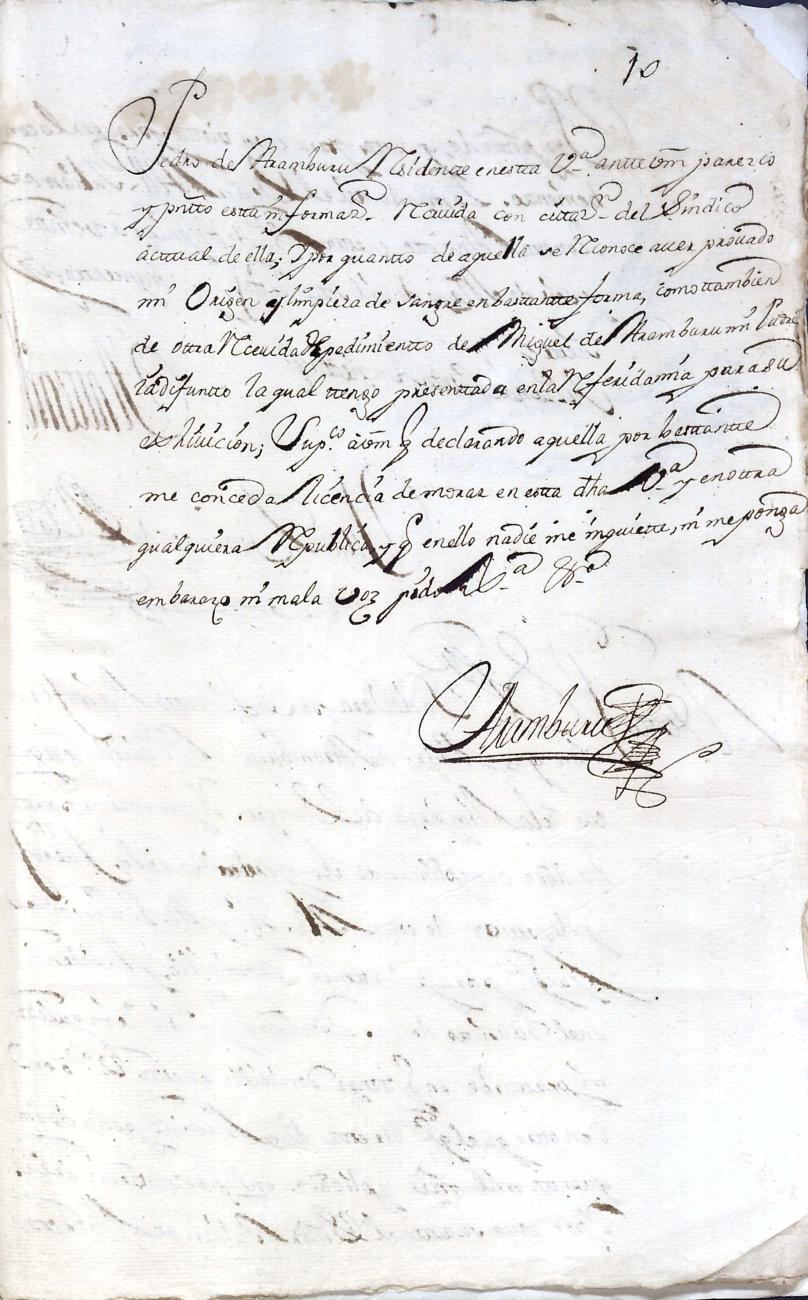 10
Pedro de Aramburu Residente en esta V.ª antte vm̃ parezco
y pntto esta informaz.on Reciuida con citaz.on del Sindico
acttual de ella; y por quantto de aquella se Reconoce auer prouado
mi Origen y limpieza de sangre en basttantte forma, como ttambien
de ottra Reciuida de pedimientto de Miguel de Aramburu mi Padre
ia difuntto la qual ttengo presenttada en la Referida mia para su
exhiuicion; Sup.co a vm̃ q declarando aquella por basttantte
me conceda licencia de morar en esta dha V.ª y en ottra
qualquiera Republica, y q en ello nadie me inquiette, ni me ponga
embarazo ni mala voz pido
Aramburu